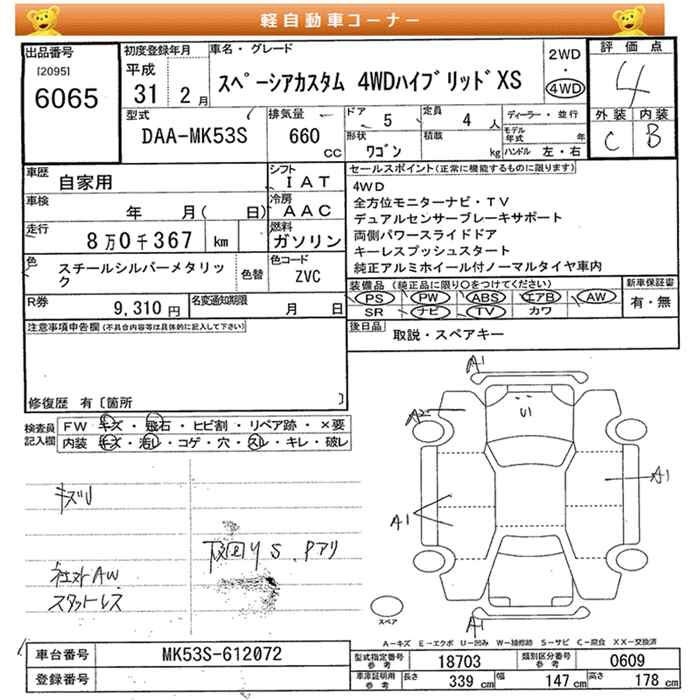 軽自動車コーナー
出品番号
[2095]
6065
初度登録年月
平成
31年 2月
車名・グレード
スペーシアカスタム 4WDハイブリッドXS
2WD
・
4WD
評価点
4
外装 内装
C B
型式
DAA-MK53S
排気量
660
CC
ドア
5
定員
4人
形状
ワゴン
積載
kg
ディーラー・並行
モデル年式 年
ハンドル 左・右
車歴
自家用
シフト
IAT
車検
年 月( 日)
冷房
AAC
走行
8万0千367 km
燃料
ガソリン
色
スチールシルバーメタリック
色替
色コード
ZVC
R券
9,310円
名変通知期限
月 日
セールスポイント(正常に機能するものに限ります)
4WD
全方位モニターナビ・TV
デュアルセンサーブレーキサポート
両側パワースライドドア
キーレスプッシュスタート
純正アルミホイール付ノーマルタイヤ車内
装備品 (純正品に限り○をつけてください)
PS PW ABS エアB AW
SR ナビ TV カワ
新車保証書
有・無
後日品
取説・スペアキー
注意事項申告欄(不具合内容等は具体的に記入して下さい)
修復歴 有〔箇所 〕
検査員
記入欄
FW キズ・飛石・ヒビ割・リペア跡・×要
内装 キズ・汚れ・コゲ・穴・スレ・キレ・破レ
キズU
下回りS、Pアリ
AW
スタットレス
A1
A2
U1
A1
A1
A1
スペア
A-キズ E-エクボ U-凹み W-補修跡 S-サビ C-腐食 XX-交換済
車台番号
MK53S-612072
登録番号
型式指定番号
参考
18703
類別区分番号
参考
0609
車庫証明用
参考
長さ
339cm
幅
147cm
高さ
178cm